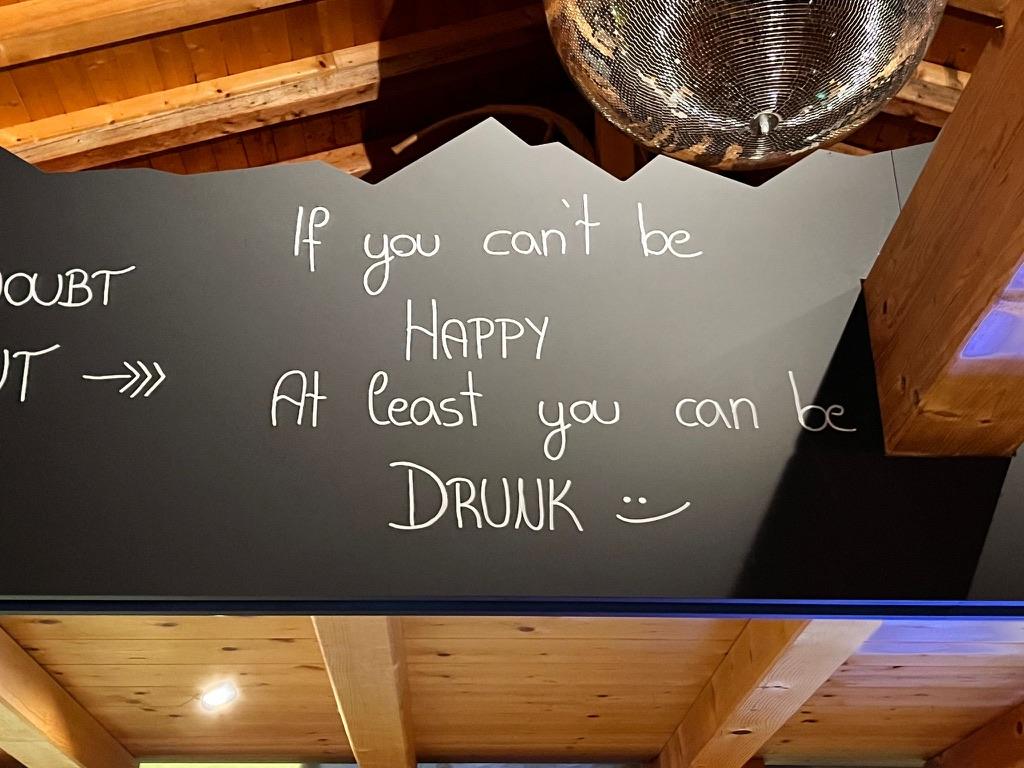 DOUBT
If you can't be
HAPPY
At least you can be
DRUNK